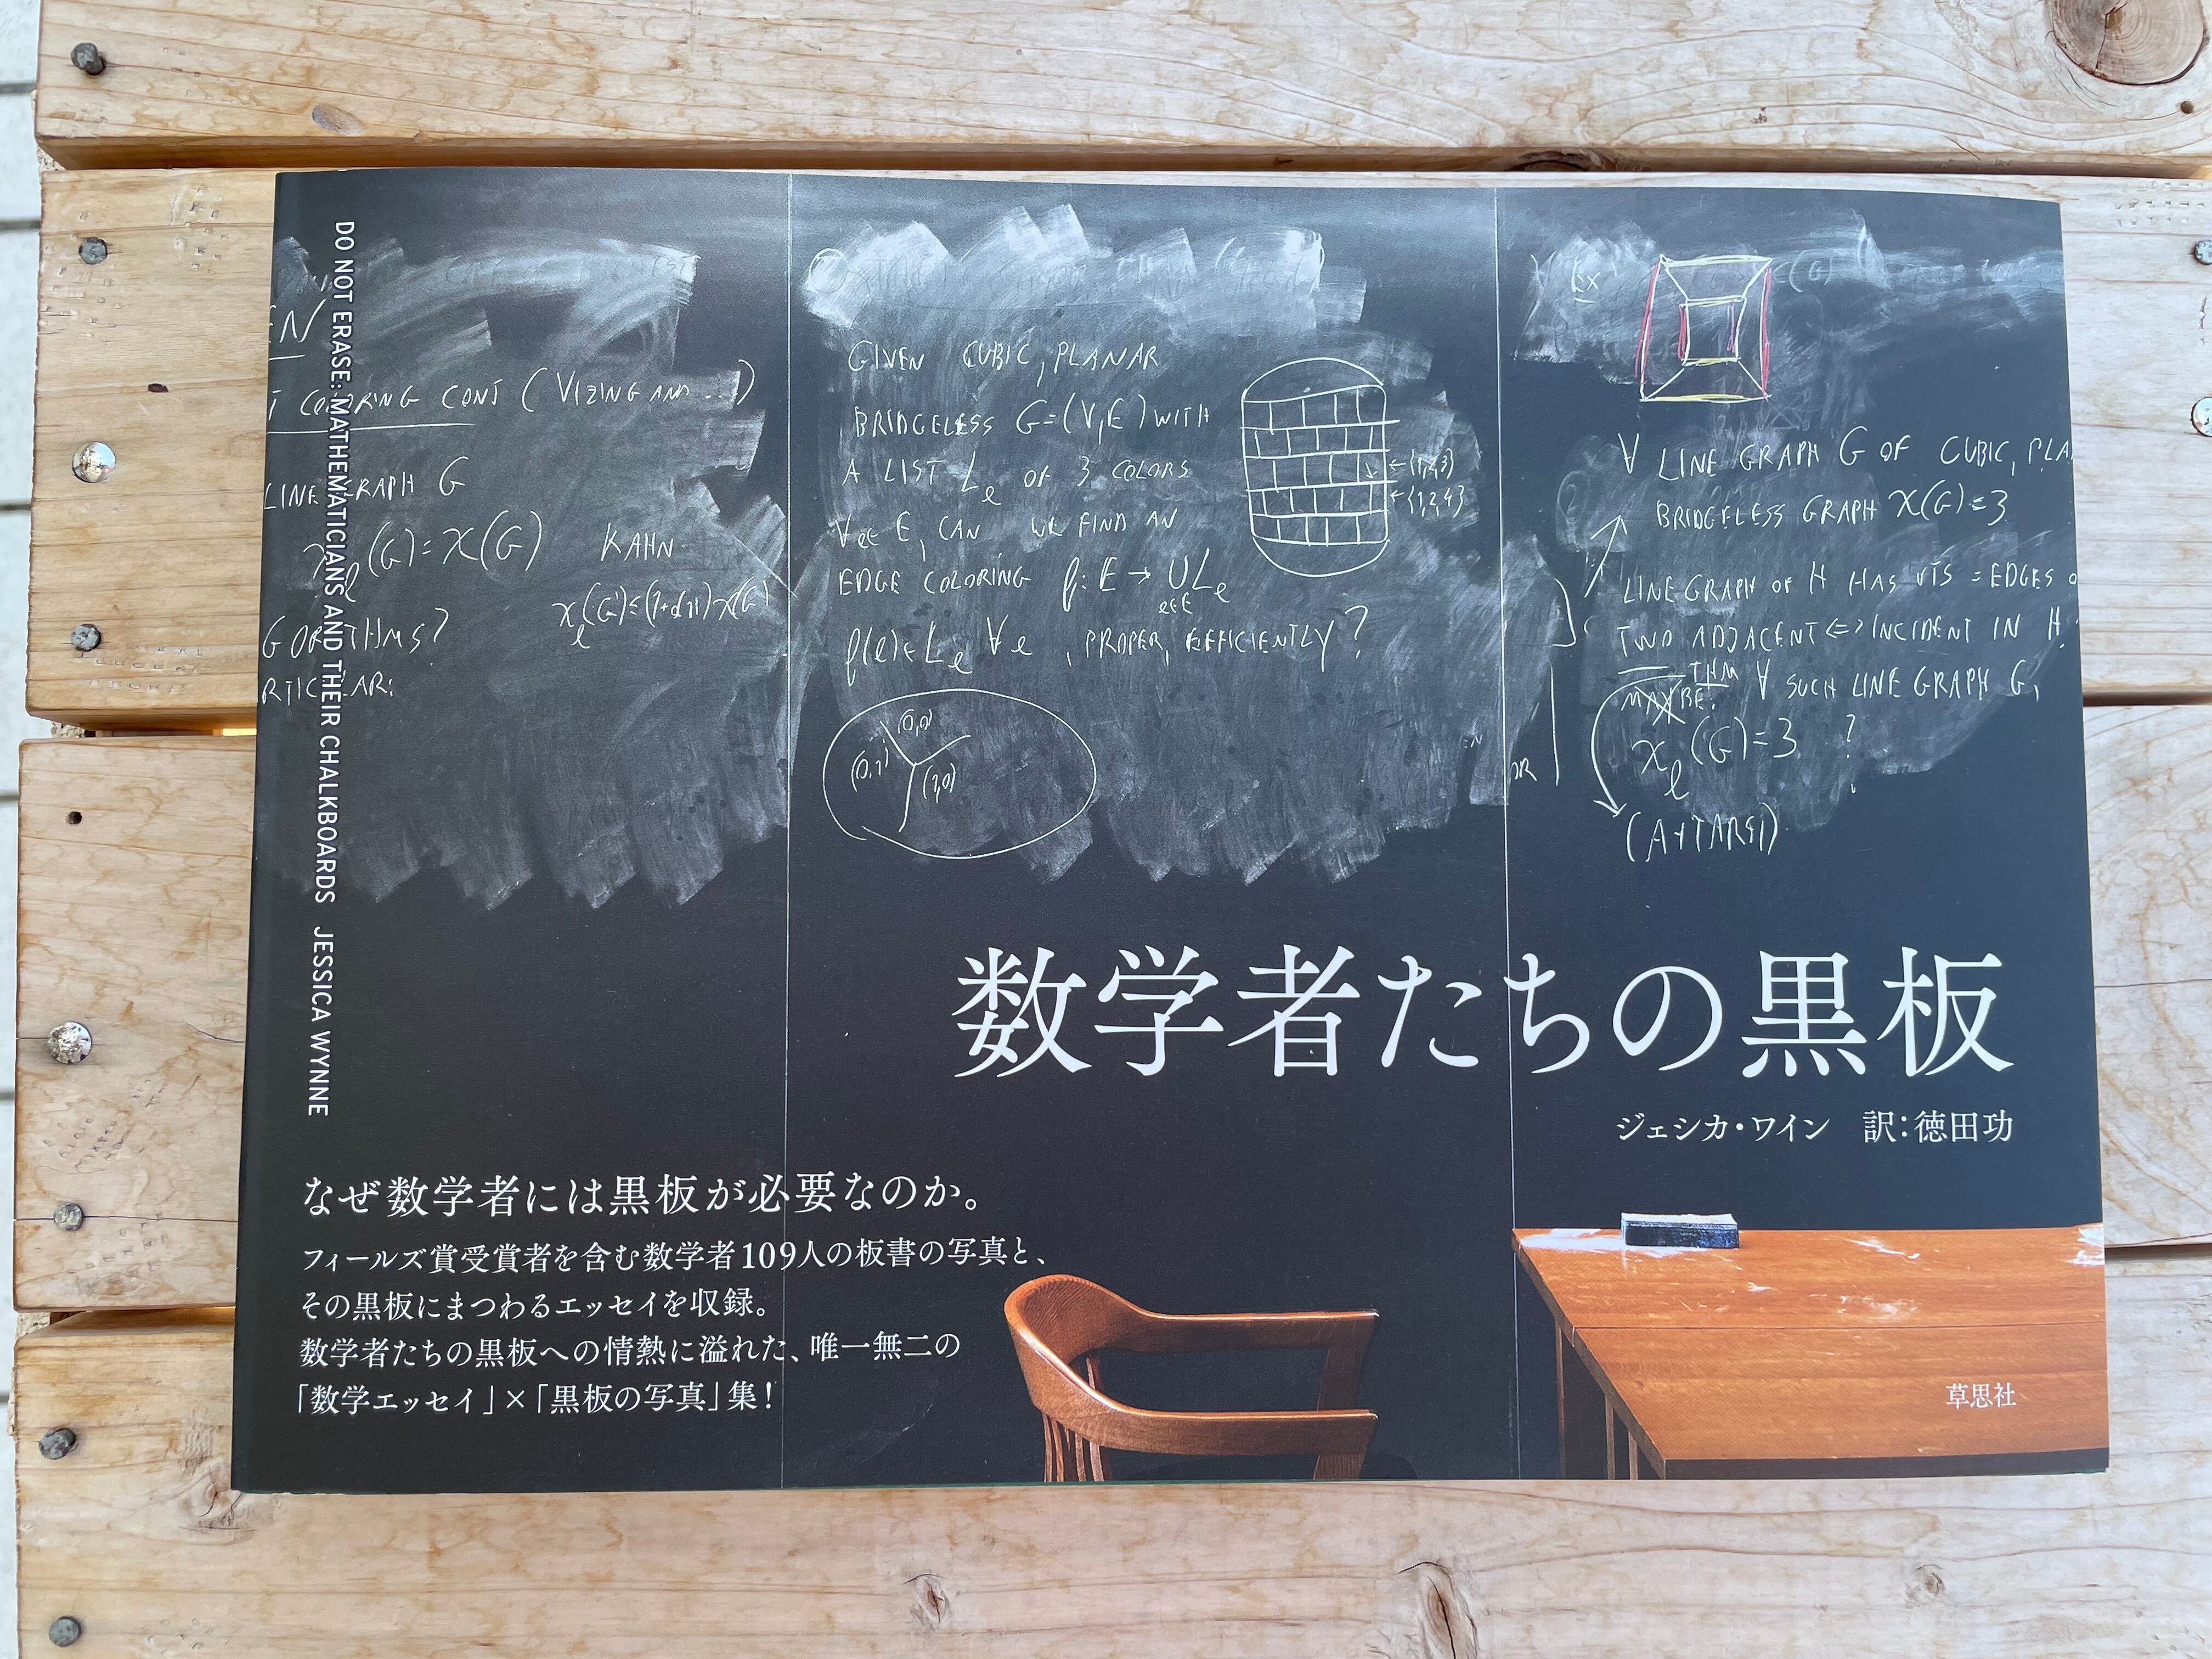 DO NOT ERASE: MATHEMATICIANS AND THEIR CHALKBOARDS JESSICA WYNNE
EN
T COLORING CONJ (VIZING AND ...)
LINE GRAPH G
χ_ℓ(G) = χ(G)
KAHN
χ_ℓ(G) ≤ (1+o(1)) χ(G)
GORITHMS?
RTICULAR:
GIVEN CUBIC, PLANAR
BRIDGELESS G=(V,E) WITH
A LIST L_e OF 3 COLORS
∀e∈E, CAN WE FIND AN
EDGE COLORING f: E → ∪_{e∈E} L_e
f(e)∈L_e ∀e, PROPER, EFFICIENTLY?
←{1,2,3}
←{1,2,4}
(0,0)
(0,1)
(1,0)
EX
∀ LINE GRAPH G OF CUBIC, PLA
BRIDGELESS GRAPH χ(G)=3
LINE GRAPH OF H HAS VTS = EDGES O
TWO ADJACENT ⇔ INCIDENT IN H.
THM
MAYBE: ∀ SUCH LINE GRAPH G,
χ_ℓ(G)=3 ?
(A+TARSI)
数学者たちの黒板
ジェシカ・ワイン 訳:徳田功
なぜ数学者には黒板が必要なのか。
フィールズ賞受賞者を含む数学者109人の板書の写真と、
その黒板にまつわるエッセイを収録。
数学者たちの黒板への情熱に溢れた、唯一無二の
「数学エッセイ」×「黒板の写真」集!
草思社